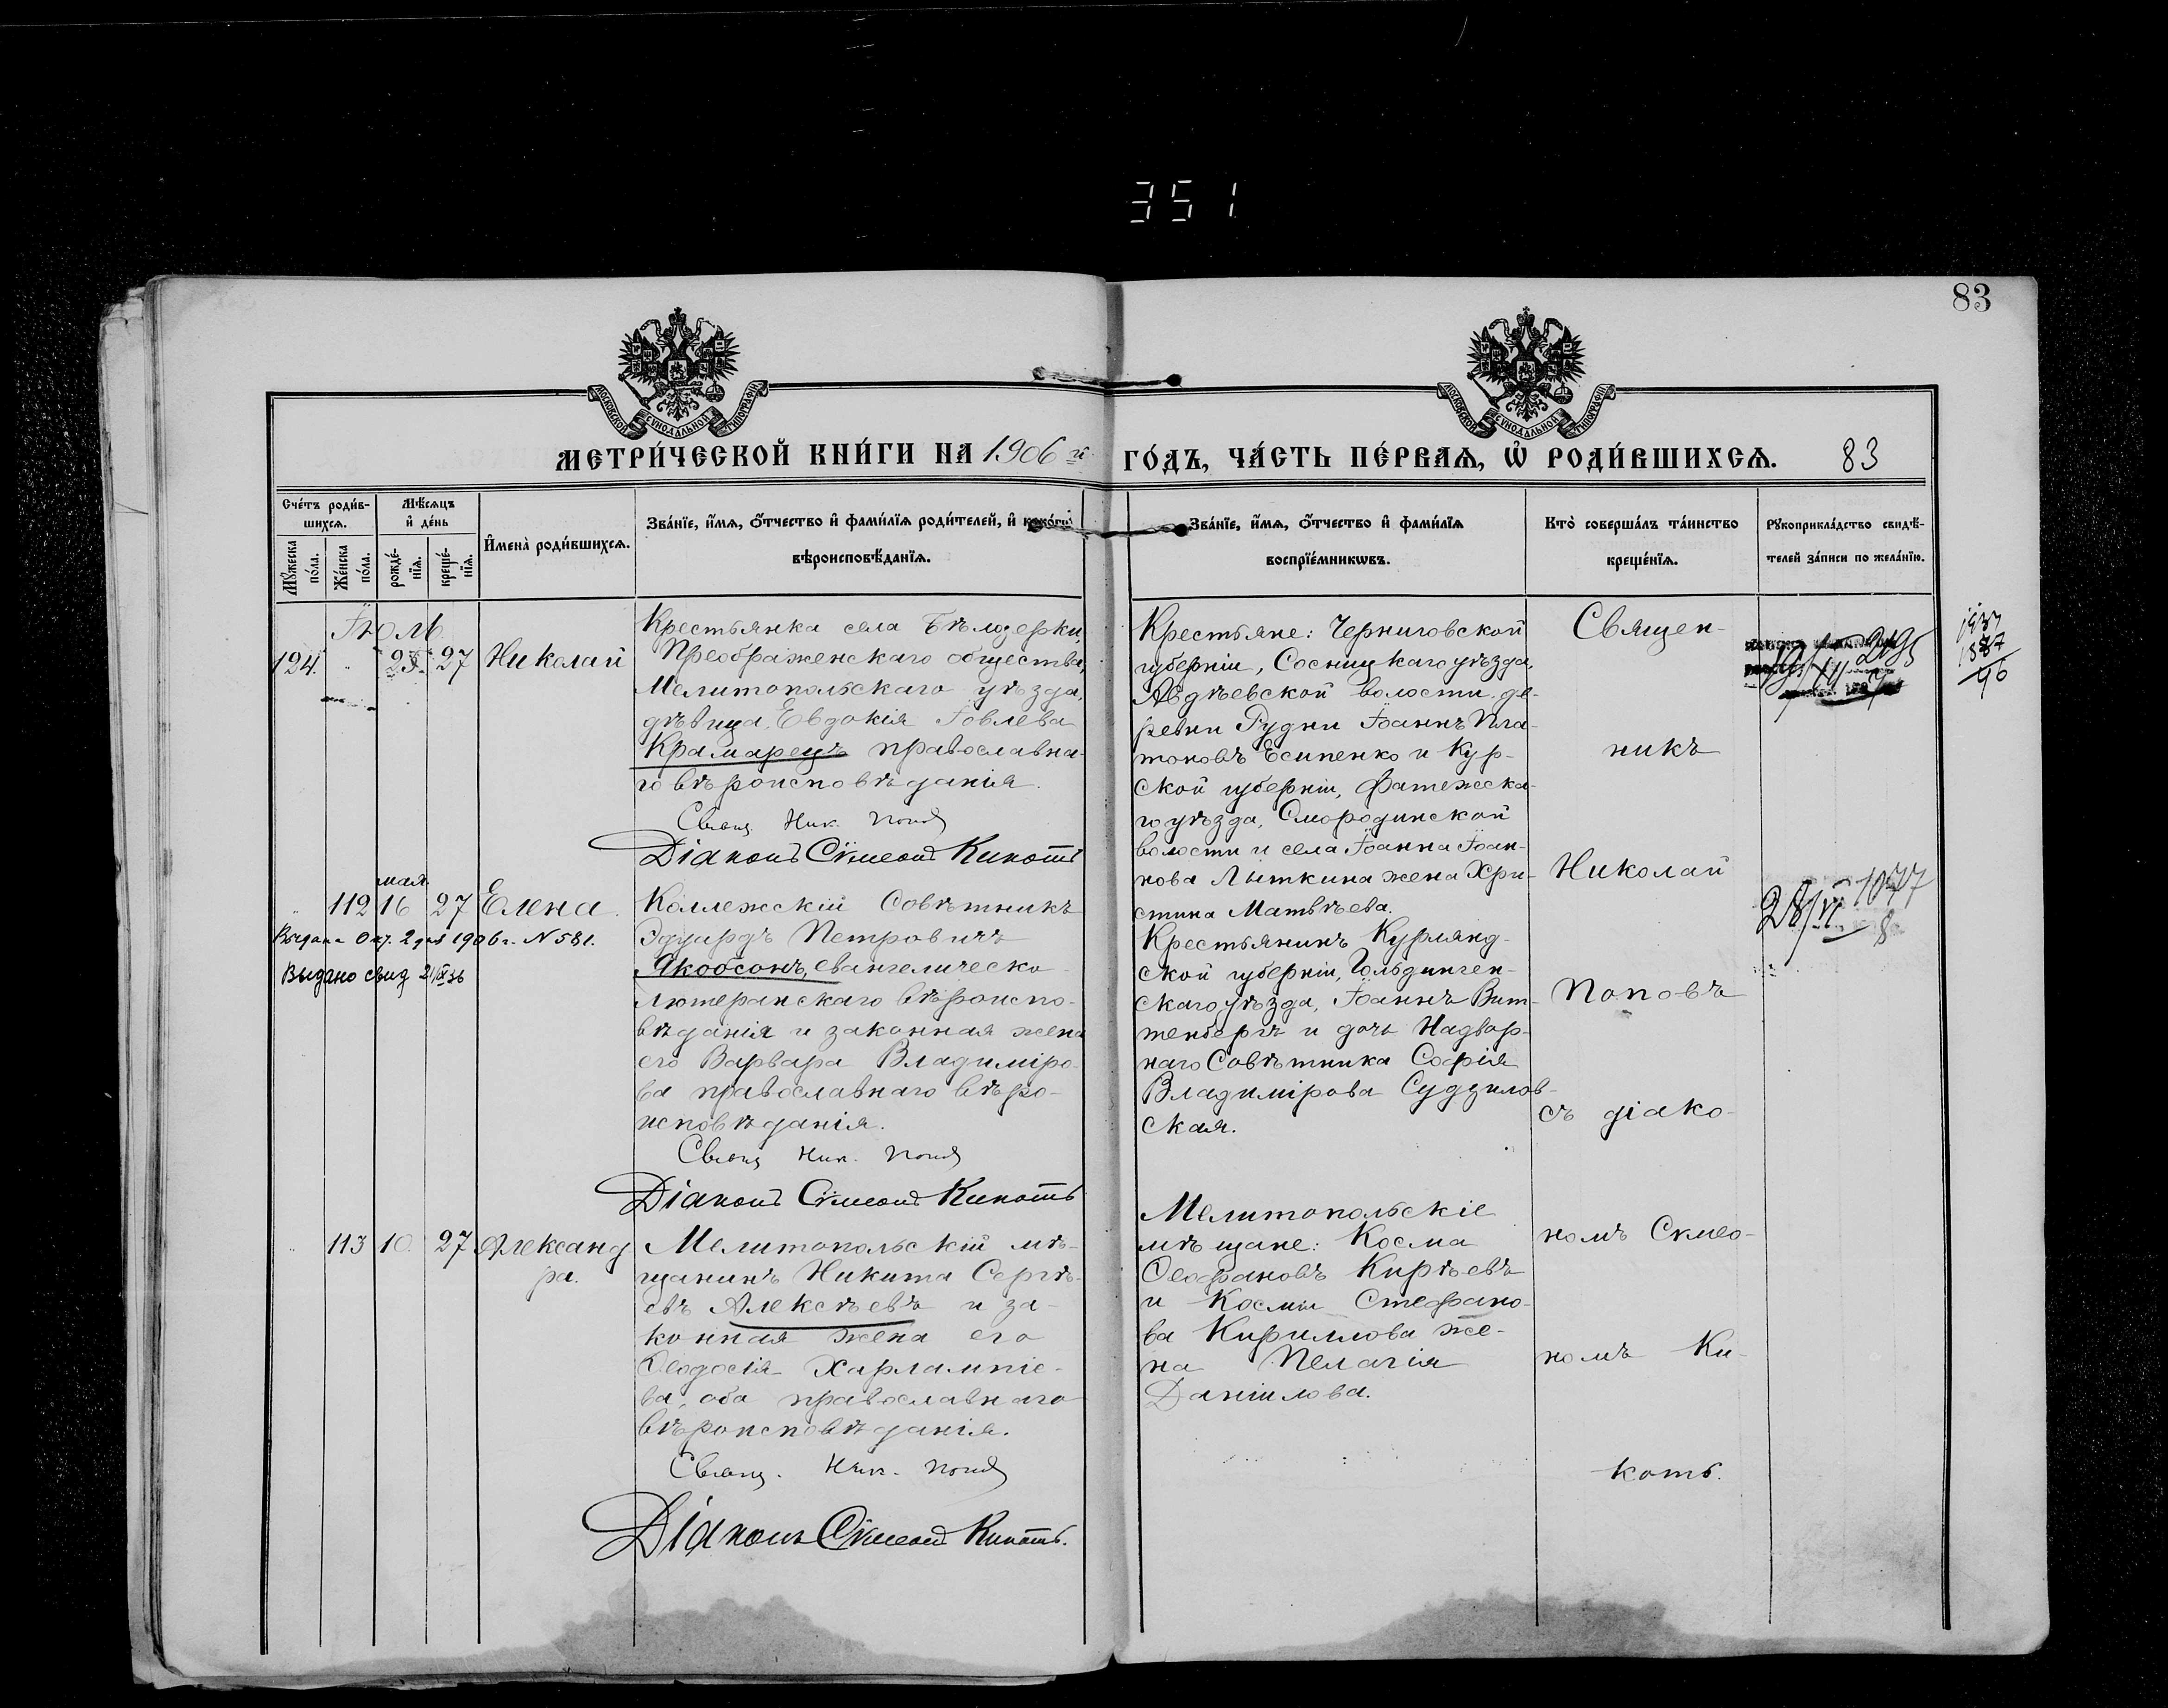 351
83
МОСКОВСКОЙ СѴНОДАЛЬНОЙ ТИПОГРАФІИ
МОСКОВСКОЙ СѴНОДАЛЬНОЙ ТИПОГРАФІИ
МЕТРИ́ЧЕСКОЙ КНИ́ГИ НА 1906 й
ГО́ДЪ, ЧА́СТЬ ПЕ́РВАѦ, Ѡ҆ РОДИ́ВШИХСѦ. 83
Сче́тъ роди́в-
шихсѧ.
Мꙋ́жеска по́ла.
Же́нска по́ла.
Мѣ́сѧцъ
и҆ де́нь
рожде́-
нїѧ.
креще́-
нїѧ.
И҆мена̀ роди́вшихсѧ.
Зва́нїе, и҆́мѧ, ѻ҆́тчество и҆ фами́лїѧ роди́телей, и҆ како́гѡ
вѣроисповѣ́данїѧ.
Зва́нїе, и҆́мѧ, ѻ҆́тчество и҆ фами́лїѧ
воспрїе́мникѡвъ.
Кто̀ соверша́лъ та́инство
креще́нїѧ.
Рꙋкоприкла́дство свидѣ́-
телей за́писи по жела́нїю.
Іюль
124. 27 Николай
Крестьянка села Бѣлозерки,
Преображенскаго общества,
Мелитопольскаго уѣзда,
дѣвица Евдокія Іовлева
Крамарецъ православна-
го вѣроисповѣданія.
Свящ. Ник. Попов
Діаконъ Сѵмеонъ Кикоть
Крестьяне: Черниговской
губерніи, Сосницкаго уѣзда,
Авдѣевской волости де-
ревни Рудни Іоаннъ Пла-
тоновъ Есипенко и Кур-
ской губерніи, Фатежска-
го уѣзда, Смородинской
волости и села Іоанна Іоан-
нова Лыткина жена Хри-
стина Матвѣева.
Священ-
никъ
Николай
Поповъ
съ діако-
номъ Сѵмео-
номъ Ки-
коть.
1937
1887
мая
112 16 27 Елена.
Выдано свид
Коллежскій Совѣтникъ
Эдуардъ Петровичъ
Якобсонъ, евангелическо-
лютеранскаго вѣроиспо-
вѣданія и законная жена
его Варвара Владиміро-
ва православнаго вѣро-
исповѣданія.
Свящ Ник. Попов
Діаконъ Сѵмеонъ Кикоть
Крестьянинъ Курлянд-
ской губерніи, Гольдинген-
скаго уѣзда, Іоаннъ Вит-
тенбергъ и дочь Надвор-
наго Совѣтника Софія
Владимірова Судзилов-
ская.
113 10. 27 Александ
ра.
Мелитопольскій мѣ-
щанинъ Никита Сергѣ-
евъ Алексѣевъ и за-
конная жена его
Ѳеодосія Харлампіе-
ва, оба православнаго
вѣроисповѣданія.
Свящ. Ник. Попов
Діаконъ Сѵмеонъ Кикоть.
Мелитопольскіе
мѣщане: Косма
Ѳеофановъ Кирѣевъ
и Космы Стефано-
ва Кириллова же-
на Пелагія
Даніилова.